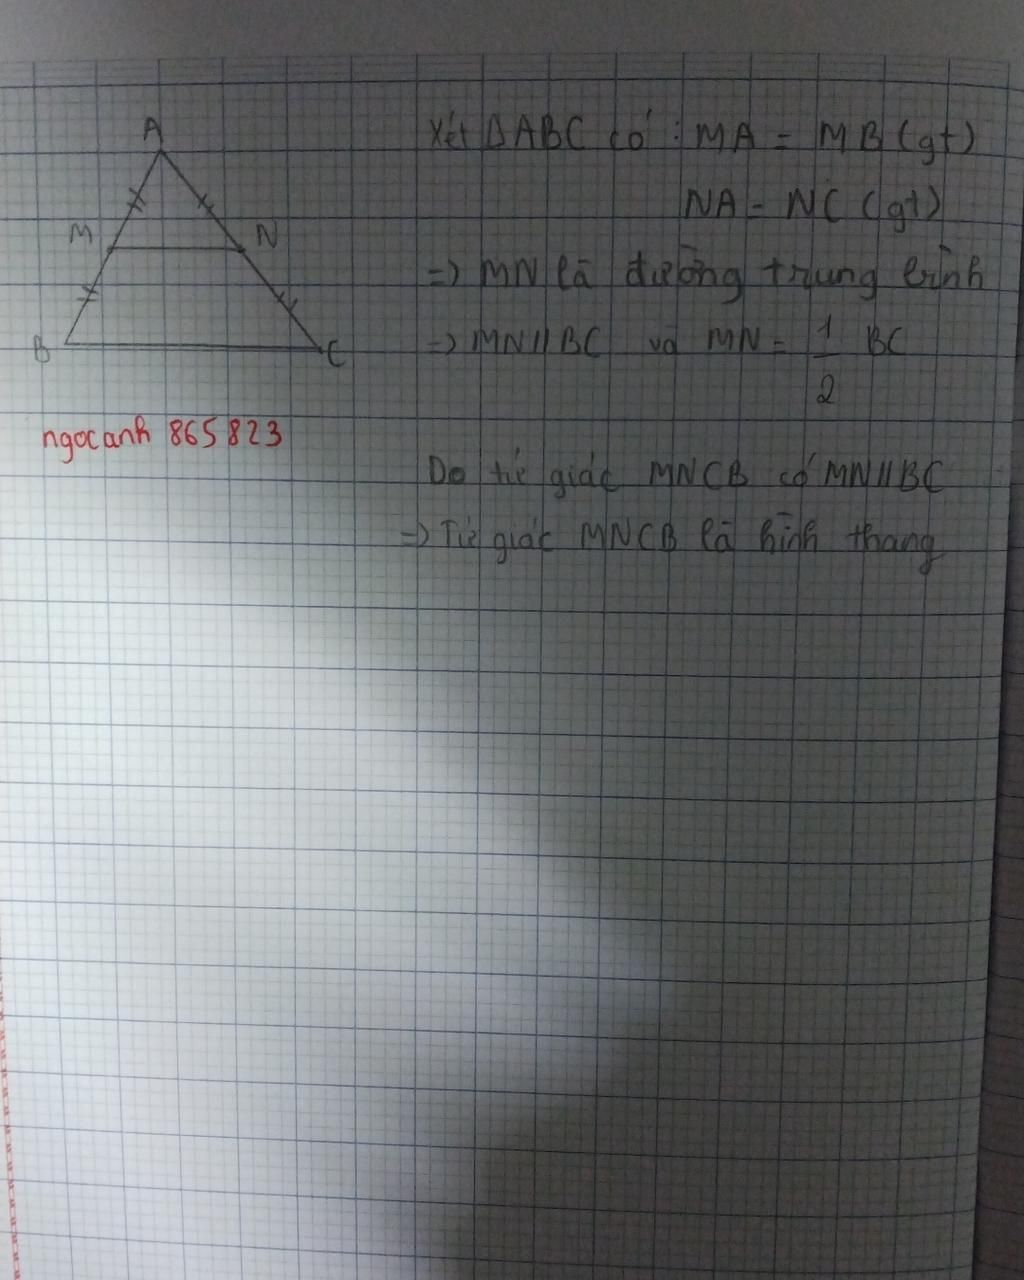 A
M
N
B
C
ngocanh 865823
Xét ΔABC có : MA = MB (gt)
NA = NC (gt)
=> MN là đường trung bình
=> MN // BC và MN = 1/2 BC
Do tứ giác MNCB có MN // BC
=> Tứ giác MNCB là hình thang